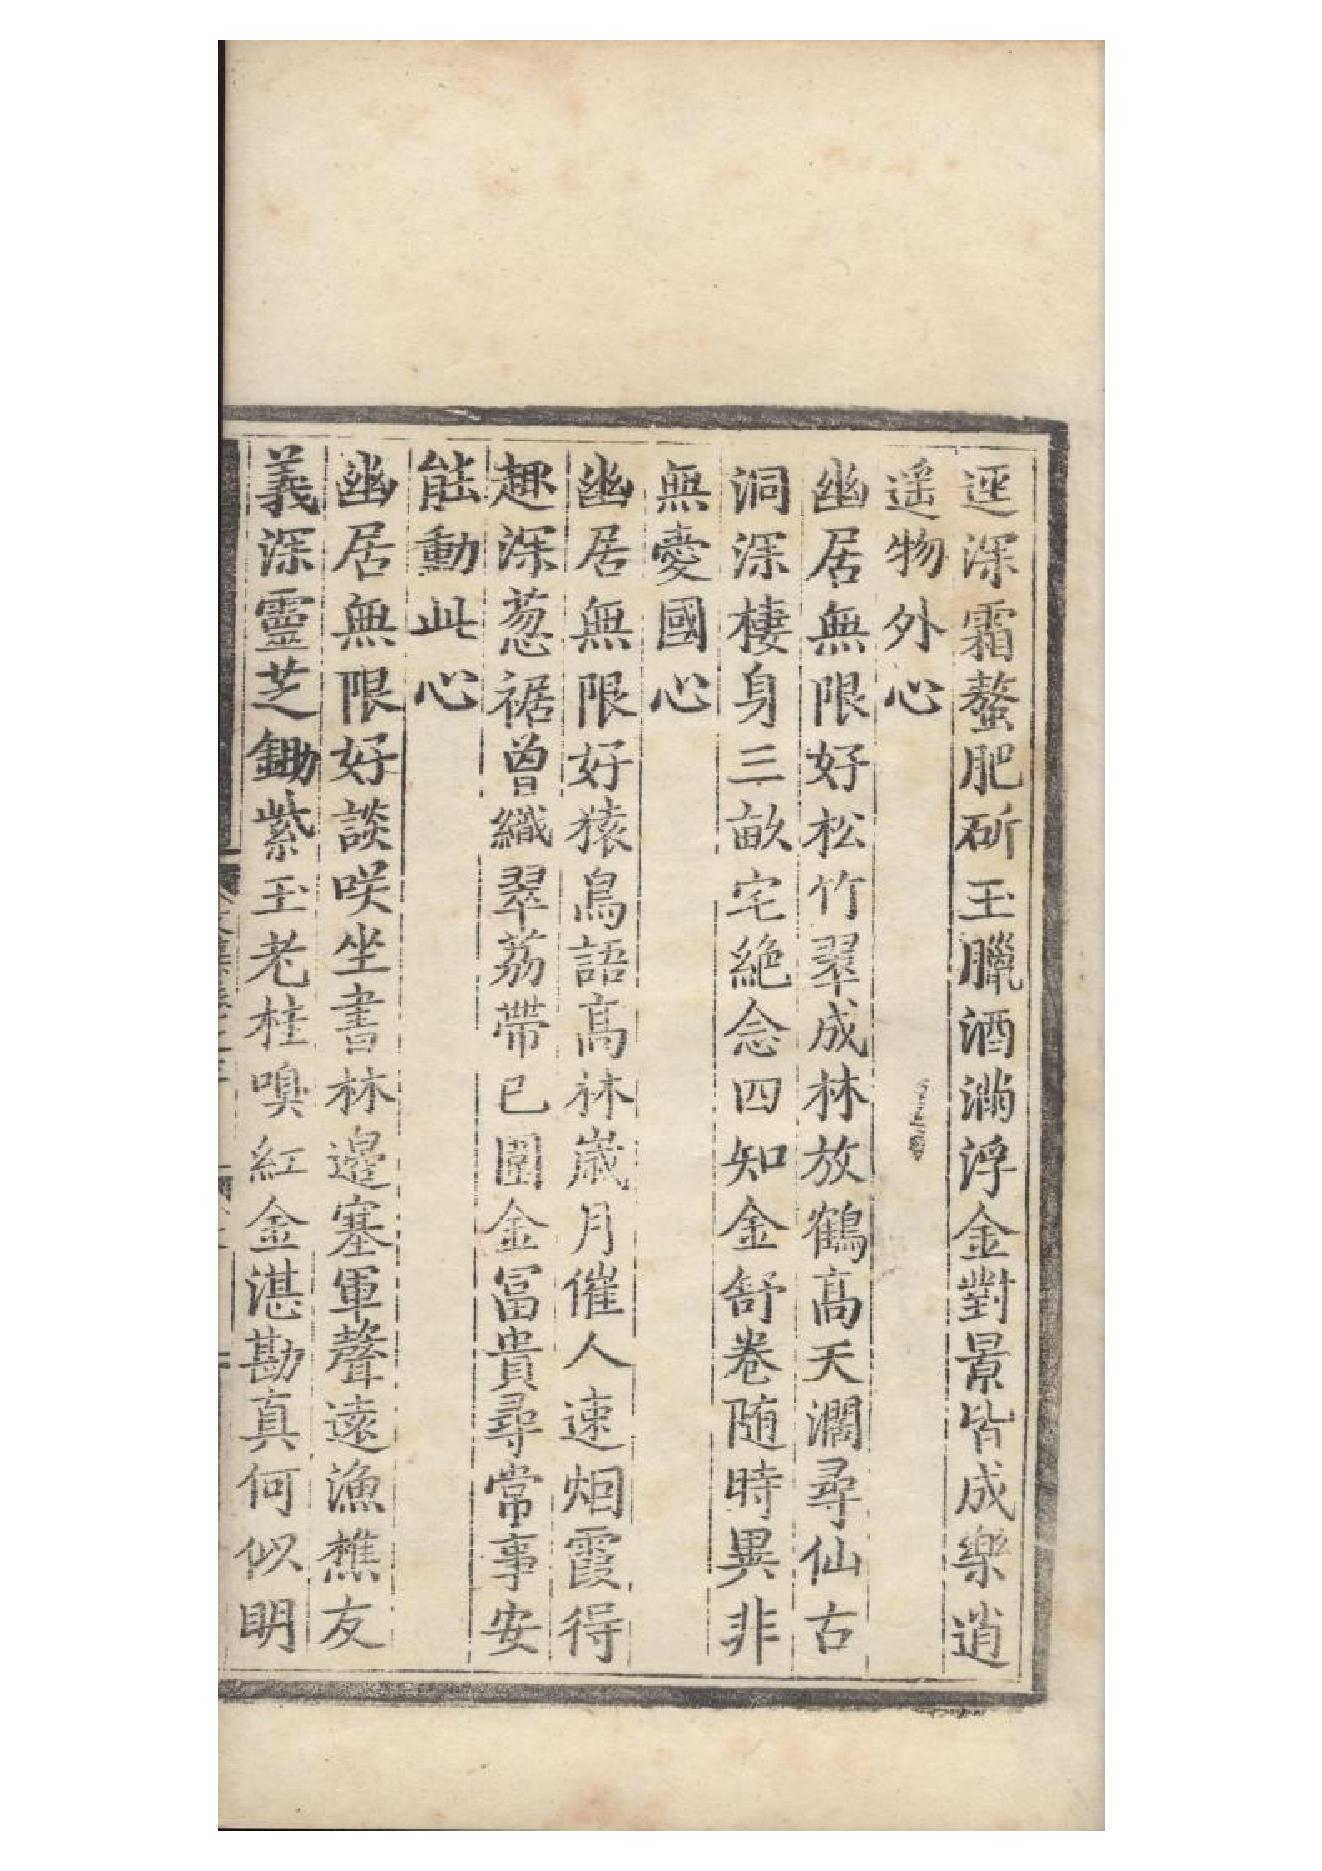 逕深霜螯肥斫玉臘酒滿浮金對景皆成樂逍
遥物外心
幽居無限好松竹翠成林放鶴高天濶尋仙古
洞深棲身三畝宅絶念四知金舒卷随時異非
無憂國心
幽居無限好猿鳥語高林嵗月催人速烟霞得
趣深葱裾曾織翠茘帶已圍金冨貴尋常事安
能動此心
幽居無限好談咲坐書林邉塞軍聲遠漁樵友
義深靈芝鋤紫玉老桂嗅紅金湛勘真何似明